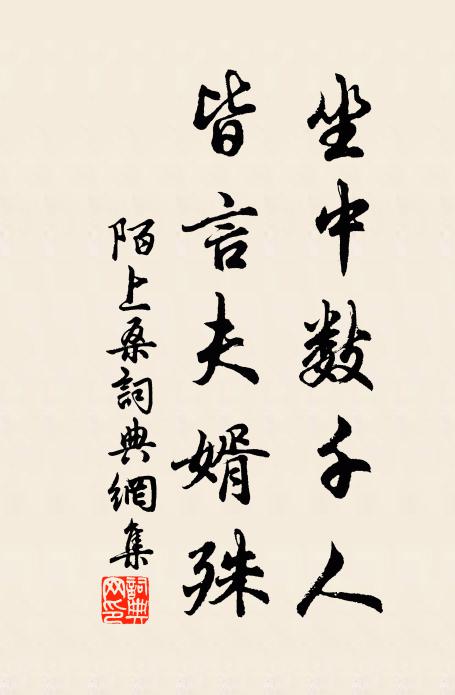 坐中数千人
皆言夫婿殊
陌上桑詞典網集
詞典网印